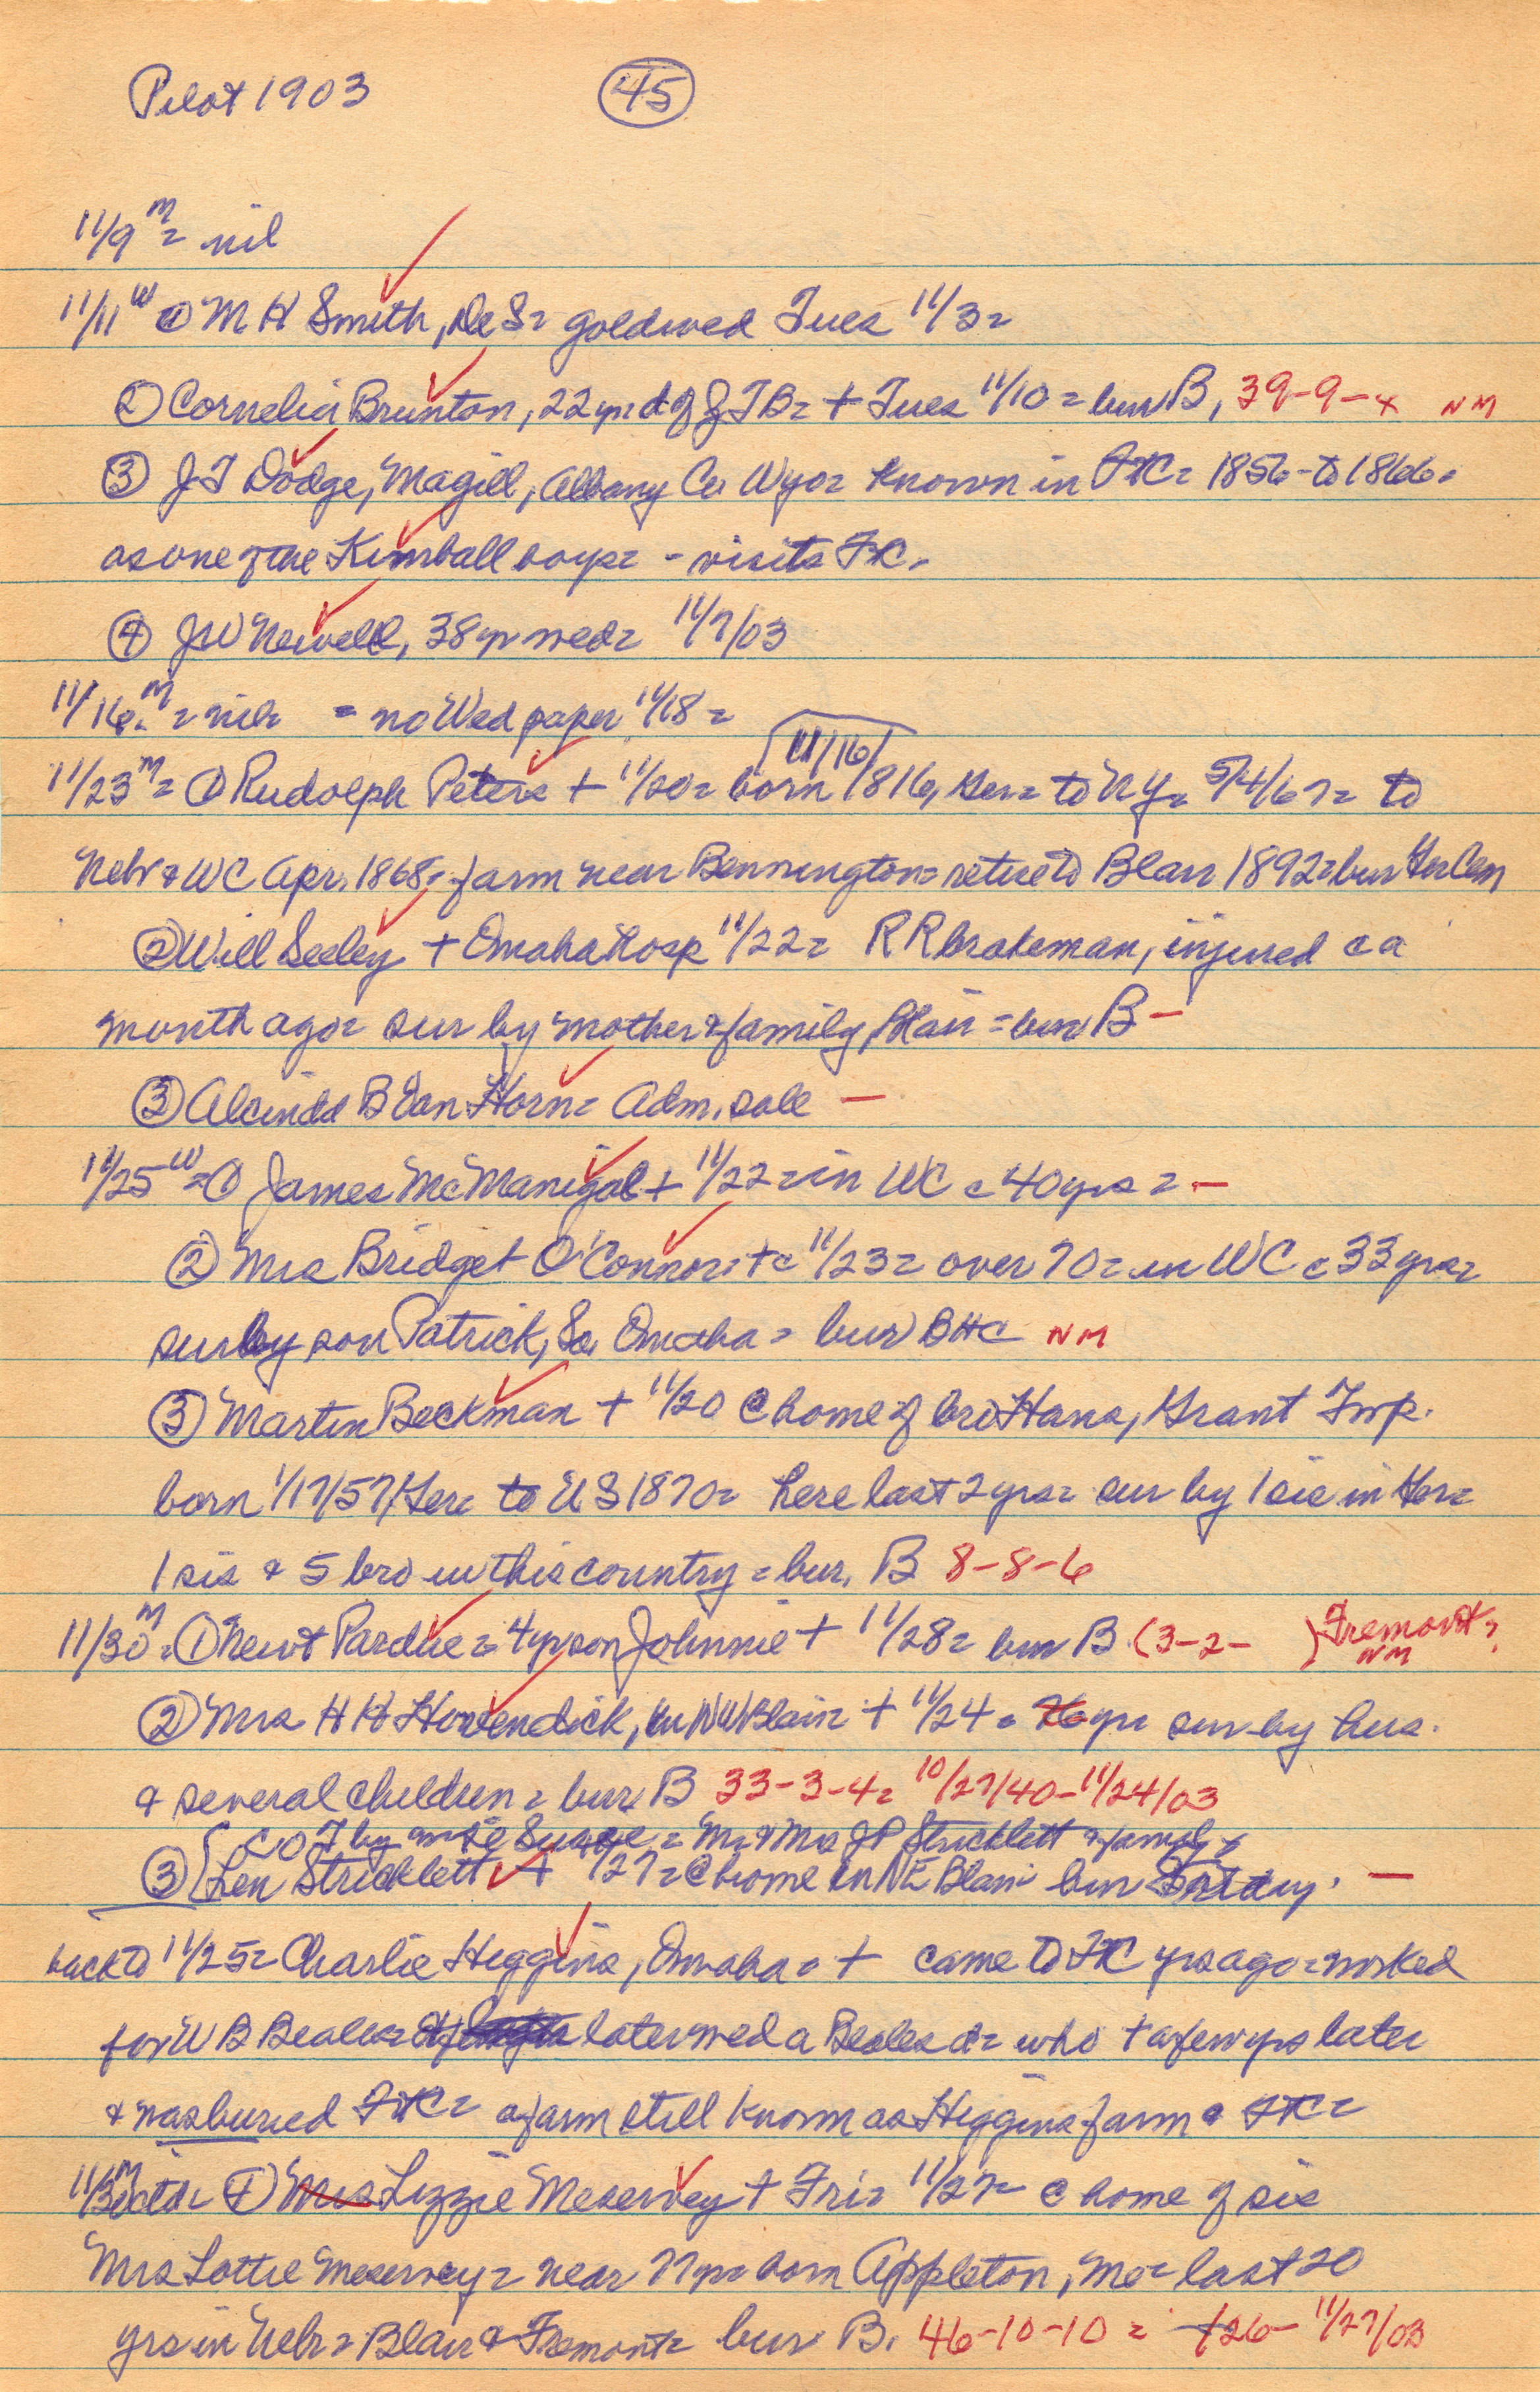 Pilot 1903 45
11/9 M = nil
11/11 W ① M H Smith, De S = gold wed Tues 11/3 =
② Cornelia Brunton, 22 yr = d of J T B = + Tues 11/10 = bur B, 39-9-x NM
③ J T Dodge, Magill, Albany Co Wyo = known in FtC = 1856 - to 1866 =
as one of the Kimball boys = - visits FtC.
④ J W Newell, 38 yr wed = 11/7/03
11/16 M = nil = = no Wed paper 11/18 =
11/16
11/23 M = ① Rudolph Peters + 11/20 = born 1816, Ger = to N Y = 5/4/67 = to
Nebr & WC Apr. 1868 = farm near Bennington = retire to Blair 1892 = bur Ger Cem
② Will Seeley + Omaha Hosp 11/22 = R R brakeman, injured c a
month ago = sur by mother & family, Blair = bur B -
③ Alcinda B Van Horn = Adm. sale -
11/25 W = ① James McManigal + 11/22 = in WC c 40 yrs = -
② Mrs Bridget O'Connor = + c 11/23 = over 70 = in WC c 33 yrs =
sur by son Patrick, So. Omaha = bur BHC NM
③ Martin Beckman + 11/20 @ home of bro Hans, Grant Twp.
born 1/17/57 Ger = to U S 1870 = here last 2 yrs = sur by 1 sis in Ger =
1 sis & 5 bro in this country = bur. B 8-8-6
11/30 M = ① Newt Pardue = 4 yr son Johnnie + 11/28 = bur B (3-2- ) Fremont? NM
② Mrs H H Hovendick, in NW Blair + 11/24 = yr = sur by hus.
& several children = bur B 33-3-4 = 10/27/40 - 11/24/03
C O T by = Mr & Mrs J P Stricklett & family
③ Len Stricklett + 11/27 = @ home in NE Blair bur Friday. -
back to 11/25 = Charlie Higgins, Omaha = + came to FtC yrs ago = worked
for W B Beales = later wed a Beales d = who + a few yrs later
& was buried FtC = a farm still known as Higgins farm @ FtC =
11/30 M ctd = ① Mrs Lizzie Meservey + Fri = 11/27 = @ home of sis
Mrs Lottie Meservey = near 77 yr = born Appleton, Me = last 20
yrs in Nebr = Blair & Fremont = bur B. 46-10-10 = /26- 11/27/03